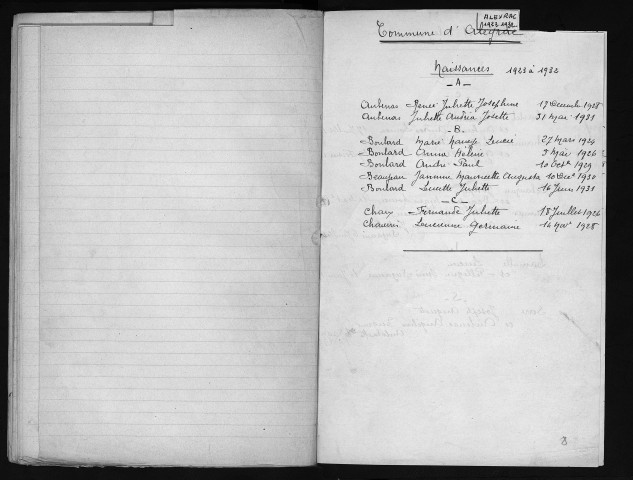 ALEYRAC
1923 1932
Commune d' Aleyrac
Naissances 1923 à 1932
- A -
Aubenas Renée Juliette Josephine 17 Decembre 1928
Aubenas Juliette Josette 31 Mai 1931
- B -
Boulard Marie Lucie 27 Mars 1924
Boulard Anna Helene 3 Mai 1926
Boulard André Paul 10 Octe 1929
Beaujean Jannine Mauricette Augusta 10 Dece 1930
Boulard Lucette Juliette 16 Juin 1931
- C -
Chaix Fernande Juliette 18 Juillet 1926
Chauvin Lucienne Germaine 14 Nov 1928
8